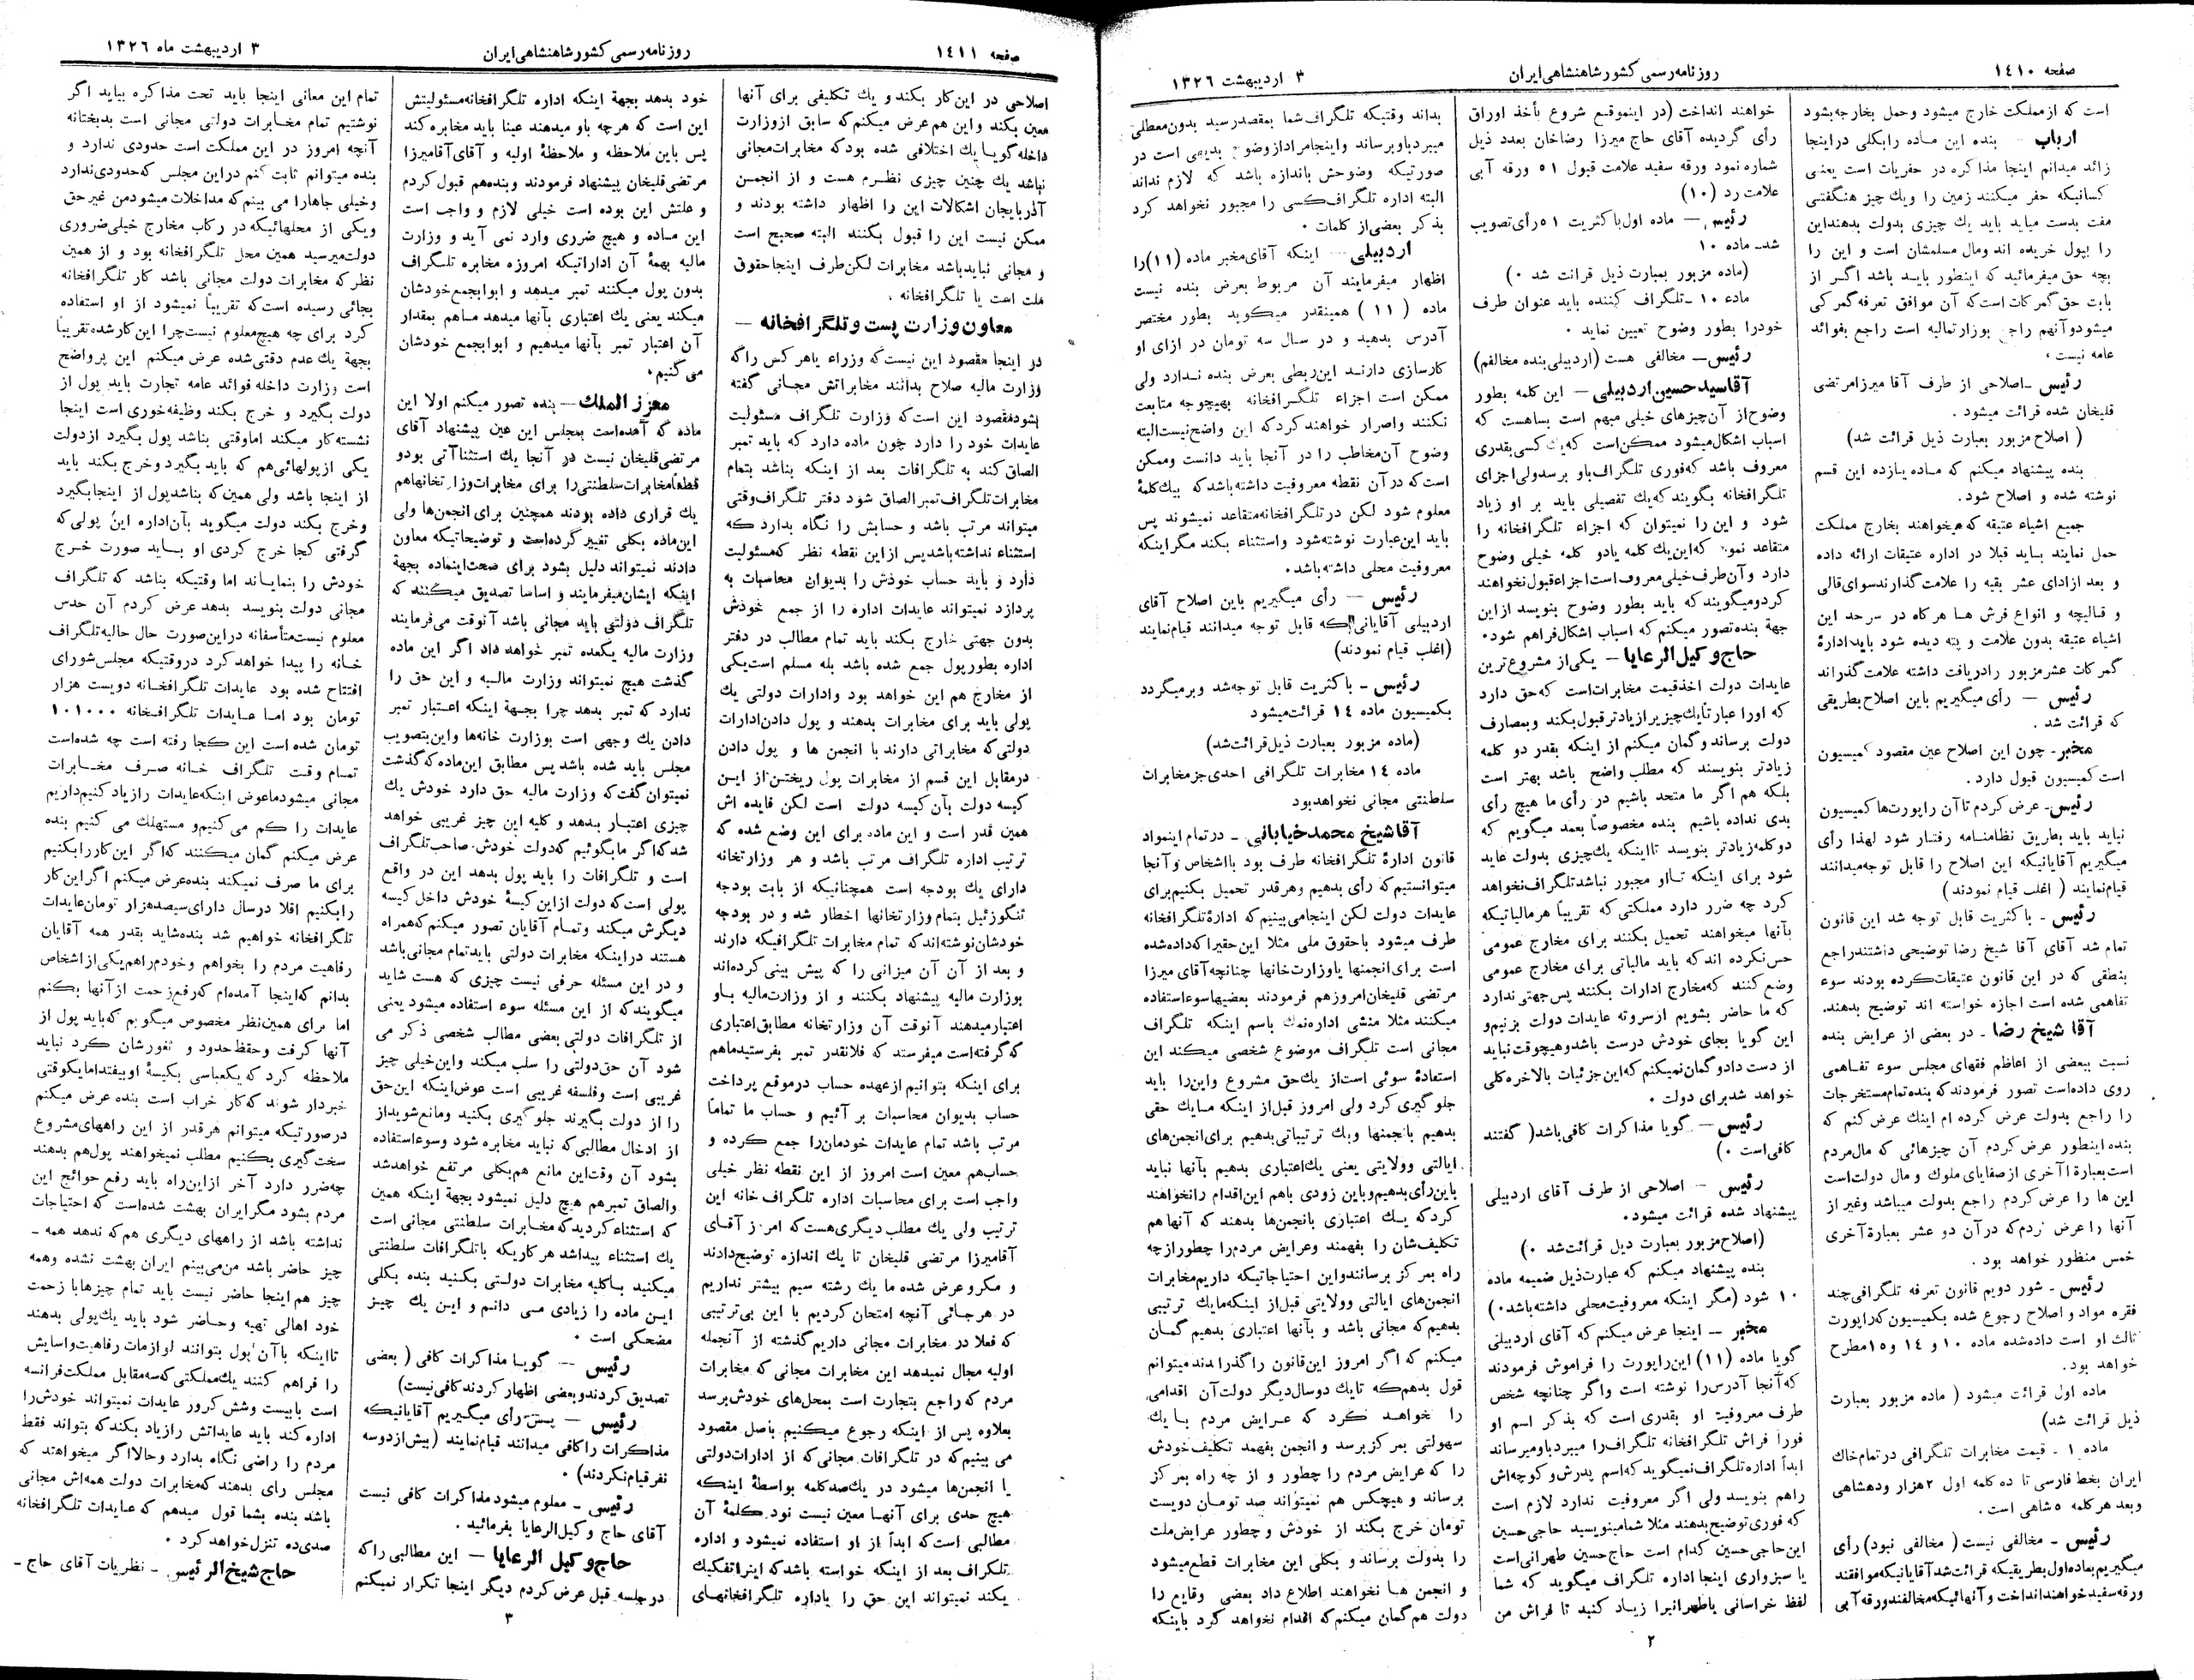 صفحه ١٤١٠
روزنامه رسمی کشور شاهنشاهی ایران
٣ اردیبهشت ١٣٢٦
است که از مملکت خارج میشود وحمل بخارجه بشود
ارباب - بنده این ماده را بکلی در اینجا
زائد میدانم اینجا مذاکره در حفریات است یعنی
کسانیکه حفر میکنند زمین را ویك چیز هنگفتی
مفت بدست میاید باید یك چیزی بدولت بدهند این
را بپول خریده اند ومال مسلمشان است و این را
بچه حق میفرمائید که اینطور بایـد باشد اگـر از
بابت حق گمرکات است که آن موافق تعرفه گمرکی
میشود و آنهم راجع بوزارتمالیه است راجع بفوائد
عامه نیست .
رئیس - اصلاحی از طرف آقا میرزا مرتضی
قلیخان شده قرائت میشود .
( اصلاح مزبور بعبارت ذیل قرائت شد)
بنده پیشنهاد میکنم که مـاده یازده این قسم
نوشته شده و اصلاح شود .
جمیع اشیاء عتیقه که میخواهند بخارج مملکت
حمل نمایند بـاید قبلا در اداره عتیقات ارائه داده
و بعد از ادای عشر بقیه را علامت گذارند سوای قالی
و قـالیچه و انواع فرش هـا هر گاه در سرحد این
اشیاء عتیقه بدون علامت و پته دیده شود باید ادارهٔ
گمرکات عشر مزبور را دریافت داشته علامت گذراند
رئیس — رأی میگیریم باین اصلاح بطریقی
که قرائت شد .
مخبر - چون این اصلاح عین مقصود کمیسیون
است کمیسیون قبول دارد .
رئیس - عرض کردم تا آن راپورت ها کمیسیون
نیاید باید بطریق نظامنامه رفتـار شود لهذا رأی
میگیریم آقایانیکه این اصلاح را قابل توجه میدانند
قیام نمایند ( اغلب قیام نمودند )
رئیس - باکثریت قابل توجه شد این قانون
تمام شد آقای آقا شیخ رضا توضیحی داشتند راجع
بنطقی که در این قانون عتیقات کرده بودند سوء
تفاهمی شده است اجازه خواسته اند توضیح بدهند.
آقا شیخ رضا - در بعضی از عرایض بنده
نسبت ببعضی از اعاظم فقهای مجلس سوء تفـاهمی
روی داده است تصور فرمودند که بنده تمام مستخرجات
را راجع بدولت عرض کرده ام اینك عرض کنم که
بنده اینطور عرض کردم آن چیزهائی که مال مردم
است بعبارة اخری از صفایای ملوك و مال دولت است
این ها را عرض کردم راجع بدولت میباشد وغیر از
آنها را عرض کردم که در آن دو عشر بعبارة آخری
خمس منظور خواهد بود .
رئیس - شور دویم قانون تعرفه تلگرافی چند
فقره مواد و اصلاح رجوع شده بکمیسیون که راپورت
ثالث او است داده شده ماده ١٠ و ١٤ و ١٥ مطرح
خواهد بود.
ماده اول قرائت میشود ( ماده مزبور بعبارت
ذیل قرائت شد)
ماده ١ - قیمت مخابرات تلگرافی در تمام خاك
ایران بخط فارسی تا ده کلمه اول ٢ هزار و دهشاهی
و بعد هر کلمه ٥ شاهی است .
رئیس - مخالفی نیست ( مخالفی نبود) رأی
میگیریم بماده اول بطریقیکه قرائت شد آقایانیکه موافقند
ورقه سفید خواهند انداخت و آنهائیکه مخالفند ورقه آبی
خواهند انداخت (در اینموقع شروع بأخذ اوراق
رأی گردیده آقای حاج میرزا رضاخان بعدد ذیل
شماره نمود ورقه سفید علامت قبول ٥١ ورقه آبی
علامت رد (١٠)
رئیس — ماده اول باکثریت ٥١ رأی تصویب
شد - ماده ١٠
(ماده مزبور بعبارت ذیل قرائت شد .)
ماده ١٠ - تلگراف کننده باید عنوان طرف
خود را بطور وضوح تعیین نماید .
رئیس - مخالفی هست (اردبیلی بنده مخالفم)
آقا سید حسین اردبیلی - این کلمه بطور
وضوح از آن چیزهای خیلی مبهم است بساهست که
اسباب اشکال میشود ممکن است که یك کسی بقدری
معروف باشد که فوری تلگراف باو برسد ولی اجزای
تلگرافخانه بگویند که یك تفصیلی باید بر او زیاد
شود و این را نمیتوان که اجزاء تلگرافخانه را
متقاعد نمود که این یك کلمه یا دو کلمه خیلی وضوح
دارد و آن طرف خیلی معروف است اجزاء قبول نخواهند
کرد و میگویند که باید بطور وضوح بنویسد از این
جهة بنده تصور میکنم که اسباب اشکال فراهم شود .
حاج وکیل الرعایا - یکی از مشروع ترین
عایدات دولت اخذ قیمت مخابرات است که حق دارد
که او را عبارتاً یك چیز بر ازیادتر قبول بکند و بمصارف
دولت برساند و گمان میکنم از اینکه بقدر دو کلمه
زیادتر بنویسند که مطلب واضح باشد بهتر است
بلکه هم اگر ما متحد باشیم در رأی ما هیچ رأی
بدی نداده باشیم بنده مخصوصاً بعمد میگویم که
دو کلمه زیادتر بنویسد تا اینکه یك چیزی بدولت عاید
شود برای اینکه تا او مجبور نباشد تلگراف نخواهد
کرد چه ضرر دارد مملکتی که تقریباً هر مالیاتیکه
بآنها میخواهند تحمیل بکنند برای مخارج عمومی
حس نکرده اند که باید مالیاتی برای مخارج عمومی
وضع کنند که مخارج ادارات بکنند پس جهتی ندارد
که ما حاضر بشویم از سر وته عایدات دولت بزنیم و
این گویا بجای خودش درست باشد و هیچوقت نباید
از دست داد و گمان نمیکنم که این جزئیات بالاخره کلی
خواهد شد برای دولت .
رئیس - گویا مذاکرات کافی باشد ( گفتند
کافی است .)
رئیس - اصلاحی از طرف آقای اردبیلی
پیشنهاد شده قرائت میشود.
(اصلاح مزبور بعبارت ذیل قرائت شد .)
بنده پیشنهاد میکنم که عبارت ذیل ضمیمه ماده
١٠ شود (مگر اینکه معروفیت محلی داشته باشد .)
مخبر - اینجا عرض میکنم که آقای اردبیلی
گویا ماده (١١) این راپورت را فراموش فرمودند
که آنجا آدرس را نوشته است و اگر چنانچه شخص
طرف معروفیت او بقدری است که بذکر اسم او
فوراً فراش تلگرافخانه تلگراف را میبرد باو میرساند
ابداً اداره تلگراف نمیگوید که اسم پدرش و کوچه اش
راهم بنویسد ولی اگر معروفیت ندارد لازم است
که فوری توضیح بدهند مثلا شما مینویسید حاجی حسین
این حاجی حسین کدام است حاج حسین طهرانی است
یا سبزواری اینجا اداره تلگراف میگوید که شما
لفظ خراسانی یا طهرانی را زیـاد کنید تا فراش من
بداند وقتیکه تلگراف شما بمقصد رسید بدون معطلی
میبرد باو برساند و اینجا مراد از وضوح بدیهی است در
صورتیکه وضوحش باندازه باشد که لازم نداند
البته اداره تلگراف کسی را مجبور نخواهد کرد
بذکر بعضی از کلمات .
اردبیلی — اینکه آقای مخبر ماده (١١) را
اظهار میفرمایند آن مربوط بعرض بنده نیست
ماده (١١) همینقدر میگوید بطور مختصر
آدرس بدهید و در سـال سه تومان در ازای او
کارسازی دارنـد این ربطی بعرض بنده نـدارد ولی
ممکن است اجزاء تلگرافخانه بهیچوجه متابعت
نکنند و اصرار خواهند کرد که این واضح نیست البته
وضوح آن مخاطب را در آنجا باید دانست وممکن
است که در آن نقطه معروفیت داشته باشد که بیك کلمهٔ
معلوم شود لکن در تلگرافخانه متقاعد نمیشوند پس
باید این عبارت نوشته شود واستثناء بکند مگر اینکه
معروفیت محلی داشته باشد.
رئیس — رأی میگیریم باین اصلاح آقای
اردبیلی آقایانیکه قابل توجه میدانند قیام نمایند
(اغلب قیام نمودند)
رئیس - باکثریت قابل توجه شد و بر میگردد
بکمیسیون ماده ١٤ قرائت میشود
(ماده مزبور بعبارت ذیل قرائت شد)
ماده ١٤ مخابرات تلگرافی احدی جز مخابرات
سلطنتی مجانی نخواهد بود
آقا شیخ محمد خیابانی - در تمام اینمواد
قانون ادارهٔ تلگرافخانه طرف بود با اشخاص و آنجا
میتوانستیم که رأی بدهیم و هر قدر تحمیل بکنیم برای
عایدات دولت لکن اینجا می بینیم که ادارهٔ تلگرافخانه
طرف میشود با حقوق ملی مثلا این حقی را که داده شده
است برای انجمنها یا وزارت خانها چنانچه آقای میرزا
مرتضی قلیخان امروز هم فرمودند بعضیها سوء استفاده
میکنند مثلا منشی اداره نمك باسم اینکه تلگراف
مجانی است تلگراف موضوع شخصی میکند این
استفادهٔ سوئی است از یك حق مشروع و این را باید
جلوگیری کرد ولی امروز قبل از اینکه مـایك حقی
بدهیم بانجمنها ویك ترتیباتی بدهیم برای انجمن های
ایالتی وولایتی یعنی یك اعتباری بدهیم بآنها نباید
باین رأی بدهیم و باین زودی باهم این اقدام را نخواهند
کرد که یـك اعتباری بانجمن ها بدهند که آنها هم
تکلیف شان را بفهمند وعرایض مردم را چطور از چه
راه بمرکز برسانند و این احتیاجاتیکه داریم مخابرات
انجمن های ایالتی وولایتی قبل از اینکه ما یك ترتیبی
بدهیم که مجانی باشد و بآنها اعتباری بدهیم گمـان
میکنم که اگر امروز این قانون را گذراندند میتوانم
قول بدهم که تا یك دو سال دیگر دولت آن اقدامی
را نخواهـد کرد که عـرایض مردم بـا یك
سهولتی بمرکز برسد و انجمن بفهمد تکلیف خودش
را که عرایض مردم را چطور و از چه راه بمرکز
برساند و هیچکس هم نمیتواند صد تومـان دویست
تومان خرج بکند از خودش و چطور عرایض ملت
را بدولت برساند و بکلی این مخابرات قطع میشود
و انجمن هـا نخواهند اطلاع داد بعضی وقایع را
دولت هم گمان میکنم که اقدام نخواهد کرد باینکه
٢
صفحه ١٤١١
روزنامه رسمی کشور شاهنشاهی ایران
٣ اردیبهشت ماه ١٣٢٦
اصلاحی در این کار بکند و یك تکلیفی برای آنها
معین بکند و این هم عرض میکنم که سابق از وزارت
داخله گویـا یك اختلافی شده بود که مخابرات مجانی
نباشد یك چنین چیزی نظـرم هست و از انجمـن
آذربایجان اشکالات این را اظهار داشته بودند و
ممکن نیست این را قبول بکنند البته صحیح است
و مجانی نباید باشد مخابرات لکن طرف اینجا حقوق
ملت است یا تلگرافخانه .
معاون وزارت پست و تلگرافخانه —
در اینجا مقصود این نیست که وزراء یا هر کس را که
وزارت مالیه صلاح بدانند مخابراتش مجـانی گفته
بشود مقصود این است که وزارت تلگراف مسئولیت
عایدات خود را دارد چون ماده دارد که باید تمبر
الصاق کند به تلگرافات بعد از اینکه بناشد بتمام
مخابرات تلگراف تمبر الصاق شود دفتر تلگراف وقتی
میتواند مرتب باشد و حسابش را نگاه بدارد که
استثناء نداشته باشد پس از این نقطه نظر که مسئولیت
دارد و باید حساب خودش را بدیوان محاسبات به
پردازد نمیتواند عایدات اداره را از جمع خودش
بدون جهتی خارج بکند باید تمام مطالب در دفتر
اداره بطور پول جمع شده باشد بله مسلم است یکی
از مخارج هم این خواهد بود وادارات دولتی یك
پولی باید برای مخابرات بدهند و پول دادن ادارات
دولتی که مخابراتی دارند با انجمن ها و پول دادن
در مقابل این قسم از مخابرات پول ریختن از ایـن
کیسه دولت بآن کیسه دولت است لکن فایده اش
همین قدر است و این ماده برای این وضع شده که
ترتیب اداره تلگراف مرتب باشد و هر وزارتخانه
دارای یك بودجه است همچنانیکه از بابت بودجه
تنگوزئیل بتمام وزارتخانها اخطار شد و در بودجه
خودشان نوشته اند که تمام مخابرات تلگرافیکه دارند
و بعد از آن آن میزانی را که پیش بینی کرده اند
بوزارت مالیه پیشنهاد بکنند و از وزارت مالیه بـاو
اعتبار میدهند آنوقت آن وزارتخانه مطابق اعتباری
که گرفته است میفرستد که فلانقدر تمبر بفرستید ماهم
برای اینکه بتوانیم از عهده حساب در موقع پرداخت
حساب بدیوان محاسبات بر آئیم و حساب ما تماماً
مرتب باشد تمام عایدات خودمان را جمع کرده و
حسابهم معین است امروز از این نقطه نظر خیلی
واجب است برای محاسبات اداره تلگراف خانه این
ترتیب ولی یك مطلب دیگری هست که امروز آقـای
آقا میرزا مرتضی قلیخان تا یك اندازه توضیح دادند
و مکرر عرض شده ما یك رشته سیم بیشتر نداریم
در هر جـائی آنچه امتحان کردیم با این بی ترتیبی
که فعلا در مخابرات مجانی داریم گذشته از آنجمله
اولیه مجال نمیدهد این مخابرات مجانی که مخابرات
مردم که راجع بتجارت است بمحل های خودش برسد
بعلاوه پس از اینکه رجوع میکنیم بأصل مقصود
می بینیم که در تلگرافات مجانی که از ادارات دولتی
یا انجمن ها میشود در یك صد کلمه بواسطهٔ اینکه
هیچ حدی برای آنهـا معین نیست نود کلمهٔ آن
مطالبی است که ابداً از او استفاده نمیشود و اداره
تلگراف بعد از اینکه خواسته باشد که اینرا تفکیك
بکند نمیتواند این حق را با اداره تلگرافخانهـای
خود بدهد بجهة اینکه اداره تلگرافخانه مسئولیتش
این است که هر چه باو میدهند عیناً باید مخابره کند
پس باین ملاحظه و ملاحظهٔ اولیه و آقای آقا میرزا
مرتضی قلیخان پیشنهاد فرمودند و بنده هم قبول کردم
و علتش این بوده است خیلی لازم و واجب است
این مـاده و هیچ ضرری وارد نمی آید و وزارت
مالیه بهمهٔ آن اداراتیکه امروزه مخابره تلگراف
بدون پول میکنند تمبر میدهد و ابوابجمع خودشان
میکند یعنی یك اعتباری بآنها میدهد مـاهم بمقدار
آن اعتبار تمبر بآنها میدهیم و ابوابجمع خودشان
می کنیم.
معزز الملك - بنده تصور میکنم اولا این
ماده که آمده است بمجلس این عین پیشنهاد آقای
مرتضی قلیخان نیست در آنجا یك استثنا آتی بود و
قطعاً مخابرات سلطنتی را برای مخابرات وزارتخانها هم
یك قراری داده بودند همچنین برای انجمن ها ولی
این ماده بکلی تغییر کرده است و توضیحاتیکه معاون
دادند نمیتواند دلیل بشود برای صحت این ماده بجهة
اینکه ایشان میفرمایند و اساساً تصدیق میکنند که
تلگراف دولتی باید مجانی باشد آنوقت می فرمایند
وزارت مالیه یك عده تمبر خواهد داد اگر این ماده
گذشت هیچ نمیتواند وزارت مالـیه و این حق را
ندارد که تمبر بدهد چرا بجـهة اینکه اعـتبار تمبر
دادن یك وجهی است بوزارت خانه ها و این بتصویب
مجلس باید شده باشد پس مطابق این ماده که گذشت
نمیتوان گفت که وزارت مالیه حق دارد خودش یك
چیزی اعتبـار بدهد و کلیه این چیز غریبی خواهد
شد که اگر ما بگوئیم که دولت خودش صاحب تلگراف
است و تلگرافات را باید پول بدهد این در واقع
پولی است که دولت از این کیسهٔ خودش داخل کیسه
دیگرش میکند و تمـام آقایان تصور میکنم که همراه
هستند در اینکه مخابرات دولتی باید تمام مجانی باشد
و در این مسئله حرفی نیست چیزی که هست شاید
میگویند که از این مسئله سوء استفاده میشود یعنی
از تلگرافات دولتی بعضی مطالب شخصی ذکر می
شود آن حق دولتی را سلب میکند و این خیلی چیز
غریبی است وفلسفه غریبی است عوض اینکه این حق
را از دولت بگیرند جلوگیری بکنید ومانع شوید از
از ادخال مطالبی که نباید مخابره شود وسوء استفاده
بشود آن وقت این مانع هم بکلی مرتفع خواهد شد
والصاق تمبر هم هیچ دلیل نمیشود بجهة اینکه همین
که استثناء کردید که مخـابرات سلطنتی مجانی است
یك استثناء پیدا شد هر کاریکه با تلگرافات سلطنتی
میکنید بـا کلیه مخابرات دولـتی بکـنید بنده بکلی
ایـن ماده را زیادی مـی دانم و ایـن یك چیـز
مضحکی است .
رئیس — گویـا مذاکرات کافی ( بعضی
تصدیق کردند و بعضی اظهار کردند کافی نیست)
رئیس — پس رأی میگیریم آقایانیکه
مذاکرات را کافی میدانند قیام نمایند (بیش از دو سه
نفر قیام نکردند) .
رئیس - معلوم میشود مذاکرات کافی نیست
آقای حاج وکیل الرعایا بفرمائید .
حاج وکیل الرعایا — این مطالبی را که
در جلسه قبل عرض کردم دیگر اینجا تکرار نمیکنم
تمام این معانی اینجا باید تحت مذاکره بیاید اگر
نوشتیم تمام مخـابرات دولتی مجانی است بدبختانه
آنچه امروز در این مملکت است حدودی ندارد و
بنده میتوانم ثابت کنم در این مجلس که حدودی ندارد
و خیلی جاها را می بینم که مداخلات میشود من غیر حق
ویکی از محلهائیکه در رکاب مخارج خیلی ضروری
دولت میرسید همین محل تلگرافخانه بود و از همین
نظر که مخابرات دولت مجانی باشد کار تلگرافخانه
بجائی رسیده است که تقریباً نمیشود از او استفاده
کرد برای چه هیچ معلوم نیست چرا این کار شده تقریباً
بجهة یك عدم دقتی شده عرض میکنم این پر واضح
است وزارت داخله فوائد عامه تجارت باید پول از
دولت بگیرد و خرج بکند وظیفه خوری است اینجا
نشسته کار میکند اما وقتی بناشد پول بگیرد از دولت
یکی از پولهائی هم که باید بگیرد وخرج بکند باید
از اینجا باشد ولی همین که بناشد پول از اینجا بگیرد
وخرج بکند دولت میگوید بآن اداره این پولی که
گرفتی کجا خرج کردی او بـاید صورت خـرج
خودش را بنمایـاند اما وقتیکه بناشد که تلگراف
مجانی دولت بنویسد بدهد عرض کردم آن حدس
معلوم نیست متأسفانه در این صورت حال حالیه تلگراف
خـانه را پیدا خواهد کرد در وقتیکه مجلس شورای
افتتاح شده بود عایدات تلگرافخـانه دویست هزار
تومان بود امـا عـایدات تلگرافـخانه ١٠١٠٠٠
تومان شده است این کجا رفته است چه شده است
تمـام وقت تلگراف خـانه صـرف مخـابرات
مجانی میشود ما عوض اینکه عایدات را زیاد کنیم داریم
عایدات را کم می کنیم و مستهلك می کنیم بنده
عرض میکنم گمان میکنند که اگر این کار را بکنیم
برای ما صرف نمیکند بنده عرض میکنم اگر این کار
را بکنیم اقلا در سال دارای سیصد هزار تومان عایدات
تلگرافخانه خواهیم شد بنده شاید بقدر همه آقایان
رفاهیت مردم را بخواهم و خودم را هم یکی از اشخاص
بدانم که اینجا آمده ام که رفع زحمت از آنها بکنم
اما برای همین نظر مخصوص میگویم که باید پول از
آنها گرفت وحفظ حدود و ثغورشان کرد نباید
ملاحظه کرد که یکعباسی بکیسهٔ او بیفتد اما یکوقتی
خبردار شوند که کار خراب است بنده عرض میکنم
در صورتیکه میتوانم هر قدر از این راههای مشروع
سخت گیری بکنیم مطلب نمیخواهند پول هم بدهند
چه ضرر دارد آخر از این راه باید رفع حوائج این
مردم بشود مگر ایران بهشت شده است که احتیاجات
نداشته باشد از راههای دیگری هم که ندهد همه -
چیز حاضر باشد من می بینم ایران بهشت نشده و همه
چیز هم اینجا حاضر نیست باید تمام چیزها با زحمت
خود اهالی تهیه وحـاضر شود باید یك پولی بدهند
تا اینکه با آن پول بتوانند لوازمات رفاهیت و آسایش
را فراهم کنند یك مملکتی که سه مقابل مملکت فرانسه
است با بیست وشش کرور عایدات نمیتواند خودش را
اداره کند باید عایداتش را زیاد بکند که بتواند فقط
مردم را راضی نگاه بدارد و حالا اگر میخواهند که
مجلس رأی بدهند که مخابرات دولت همه اش مجانی
باشد بنده بشما قول میدهم که عـایدات تلگرافخانه
صدی ده تنزل خواهد کرد .
حاج شیخ الرئیس - نظریات آقای حاج -
٣